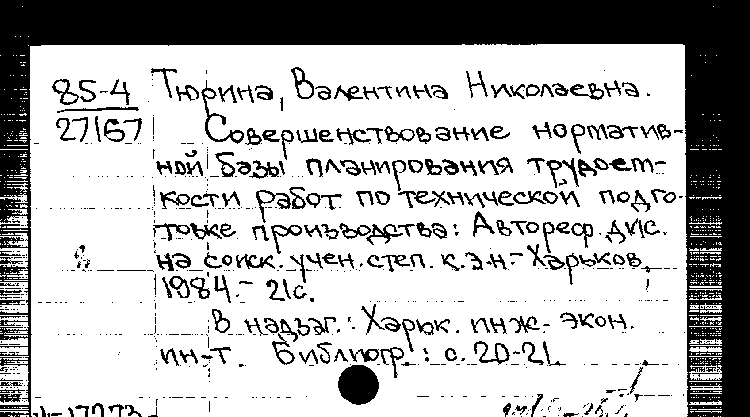 85-4 Тюрина, Валентина Николаевна.
27167 Совершенствование норматив-
ной базы планирования трудоем-
кости работ по технической подго-
товке производства: Автореф. дис.
на соиск. учен. степ. к.э.н. - Харьков,
1984. - 21с.
В надзаг.: Харьк. инж.-экон.
ин-т. Библиогр.: с. 20-21.